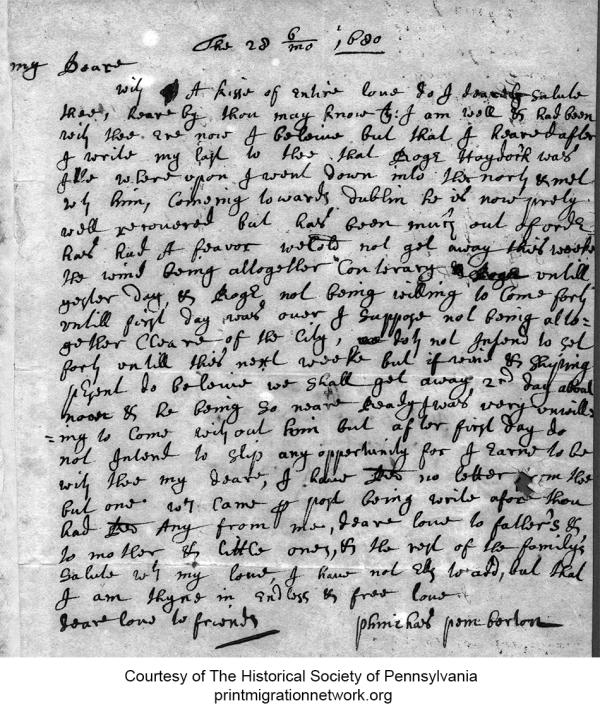 The 28 6/mo 1680
my Deare
With A kisse of Entire love do I dearely Salute
thee, heare by thou may know tht I am well & had been
with thee Ere now I beleive but that I heared after
I write my last to thee that Roger Haydock was
Ille where upon I went down into the north & met
wth him, Comeing towards dublin he is now prety
well recovered but has been much out of order
has had A feavor we Could not get away this weeke
the wind being altogether Contrary & Roger untill
yester day, & Roger not being willing to Come forth
untill first day was over I Suppose not being alto=
gether Cleare of the City, doth not Intend to set
forth untill this next weeke but if wind & Shipping
present do beleive we Shall get away 2nd day about
noon & he being So neare Ready I was very unwill=
=ing to Come without him but after first day do
not Intend to Slip any opportunity for I Earne to be
with thee my deare, I have had no letter from thee
but one wch Came per post being write afore thou
had Any from me, deare love to father's &
to mother & little ones, & the rest of the family's
Salute wth my love, I have not Els to add, but that
I am thyne in Endless & free love
deare love to friends
phinehas pemberton
Courtesy of The Historical Society of Pennsylvania
printmigrationnetwork.org